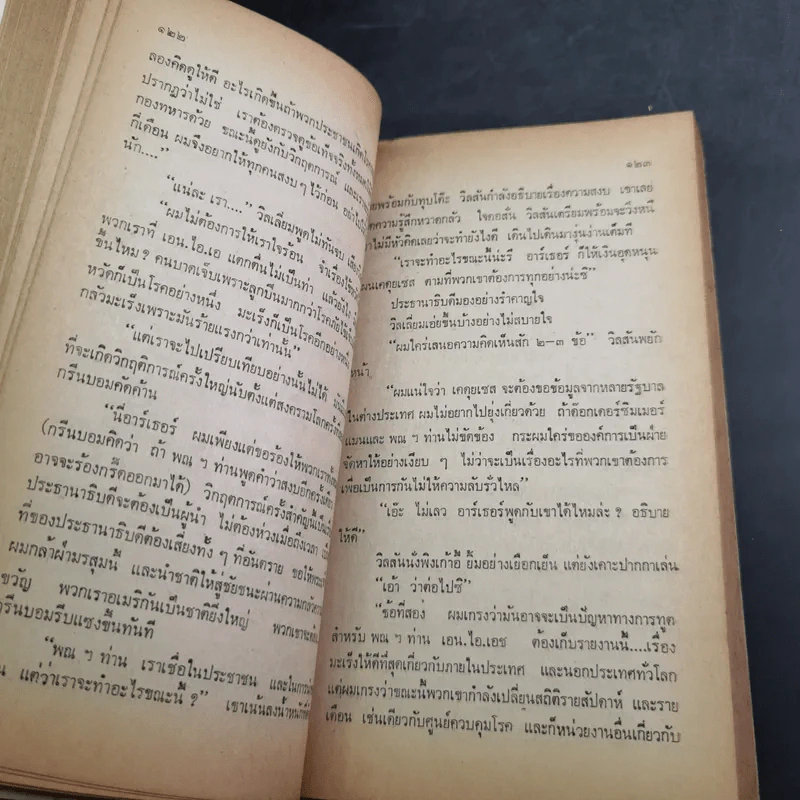 ๑๒๒
ลองคิดดูให้ดี อะไรเกิดขึ้นถ้าพวกประชาชนเกิด
ปรากฏว่าไม่ใช่ เราต้องตรวจดูข้อเท็จจริงทั้งหมด
กองทหารด้วย ขณะนี้ดูยังกับวิกฤตการณ์ และเรา
กี่เดือน ผมจึงอยากให้ทุกคนสงบ ๆ ไว้ก่อน อย่า
นัก....”
“แน่ละ เรา....” วิลเลี่ยมพูดไม่ทันจบ เสียง
“ผมไม่ต้องการให้เราใจร้อน จำเรื่องไข้
พวกเราที่ เอน.ไอ.เอ แตกตื่นไม่เป็นท่า แล้วยังไง
ขึ้นไหม ? คนบาดเจ็บเพราะลูกปืนมากกว่าโรคภัยไข้
หวัดก็เป็นโรคอย่างหนึ่ง มะเร็งก็เป็นโรคอีกอย่างหนึ่ง
กลัวมะเร็งเพราะมันร้ายแรงกว่าเท่านั้น”
“แต่เราจะไปเปรียบเทียบอย่างนั้นไม่ได้
ที่จะเกิดวิกฤติการณ์ครั้งใหญ่นับตั้งแต่สงครามโลกครั้ง
กรีนบอมคัดค้าน
“นี่อาร์เธอร์ ผมเพียงแต่ขอร้องให้พวกเรา
(กรีนบอมคิดว่า ถ้า พณ ฯ ท่านพูดคำว่าสงบอีกครั้งเดียว
อาจจะร้องกรี๊ดออกมาได้) วิกฤตการณ์ครั้งสำคัญนี้
ประธานาธิบดีจะต้องเป็นผู้นำ ไม่ต้องห่วงเมื่อถึงเวลา
ที่ของประธานาธิบดีต้องเสี่ยงทั้ง ๆ ที่อันตราย ขอให้
ผมกล้าฝ่ามรสุมนี้ และนำชาติให้สู่ชัยชนะผ่านความ
ขวัญ พวกเราอเมริกันเป็นชาติยิ่งใหญ่ พวกเขาจะ
กรีนบอมรีบแซงขึ้นทันที
“พณ ฯ ท่าน เราเชื่อในประชาชน และในการ
น แต่ว่าเราจะทำอะไรขณะนี้ ?” เขาเน้นลงน้ำหนัก
๑๒๓
พร้อมกับทุบโต๊ะ วิลสันกำลังอธิบายเรื่องความสงบ เขาเลย
ความรู้สึกหวาดกลัว ใจคอสั่น วิลสันเตรียมพร้อมจะวิ่งหนี
ไม่มีหัวคิดเลยว่าจะทำยังไงดี เดินไปเดินมางุ่นง่านเต็มที่
“เราจะทำอะไรขณะนี้น่ะรึ อาร์เธอร์ ก็ให้เงินอุดหนุน
เคดุยเซส ตามที่พวกเขาต้องการทุกอย่างน่ะซิ”
ประธานาธิบดีมองอย่างรำคาญใจ
วิลเลี่ยมเอ่ยขึ้นบ้างอย่างไม่สบายใจ
“ผมใคร่เสนอความคิดเห็นสัก ๒-๓ ข้อ” วิลสันพยัก
หน้า
“ผมแน่ใจว่า เคดุยเซส จะต้องขอข้อมูลจากหลายรัฐบาล
ในต่างประเทศ ผมไม่อยากไปยุ่งเกี่ยวด้วย ถ้าด๊อกเตอร์ซิมเมอร์
แมนและ พณ ฯ ท่านไม่ขัดข้อง กระผมใคร่ขอองค์การเป็นฝ่าย
จัดหาให้อย่างเงียบ ๆ ไม่ว่าจะเป็นเรื่องอะไรที่พวกเขาต้องการ
เพื่อเป็นการกันไม่ให้ความลับรั่วไหล”
“เอ๊ะ ไม่เลว อาร์เธอร์พูดกับเขาได้ไหมล่ะ ? อธิบาย
ให้ดี”
วิลสันนั่งพิงเก้าอี้ ยิ้มอย่างเยือกเย็น แต่ยังเคาะปากกาเล่น
“เอ้า ว่าต่อไปซิ”
“ข้อที่สอง ผมเกรงว่ามันอาจจะเป็นปัญหาทางการทูต
สำหรับ พณ ฯ ท่าน เอน.ไอ.เอช ต้องเก็บรายงานนี้....เรื่อง
มะเร็งให้ดีที่สุดเกี่ยวกับภายในประเทศ และนอกประเทศทั่วโลก
แต่ผมเกรงว่าขณะนี้พวกเขากำลังเปลี่ยนสถิติรายสัปดาห์ และราย
เดือน เช่นเดียวกับศูนย์ควบคุมโรค และก็หน่วยงานอื่นเกี่ยวกับ